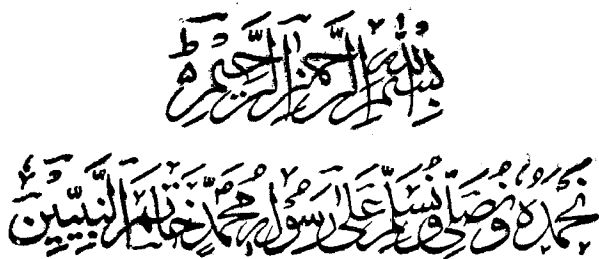 بِسْمِ اللّٰهِ الرَّحْمٰنِ الرَّحِيْمِ ط
نَحْمَدُهٗ وَنُصَلِّيْ وَنُسَلِّمُ عَلٰى رَسُوْلِهٖ مُحَمَّدٍ خَاتَمِ النَّبِيّيْنَ